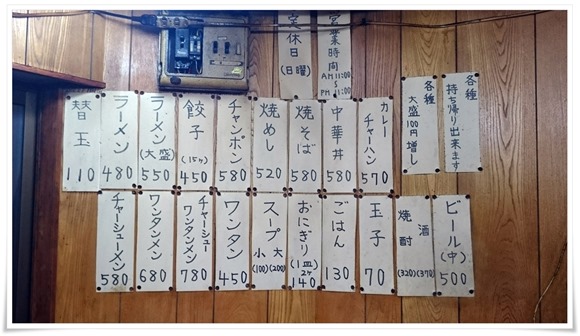 営業時間
AM 11:00
〜
PM 11:00
定休日
(日曜)
各種
持ち帰り出来ます
各種
大盛100円増し
カレー
チャーハン
570
中華丼
580
焼そば
580
焼めし
520
チャンポン
580
餃子
(15ヶ)
450
ラーメン
(大盛)
550
ラーメン
480
替玉
110
ビール(中)
500
酒
(370)
焼酎
(320)
玉子
70
ごはん
130
おにぎり
(1皿2ヶ)
140
スープ
大
(200)
小
(100)
ワンタン
450
チャーシュー
ワンタンメン
780
ワンタンメン
680
チャーシューメン
580